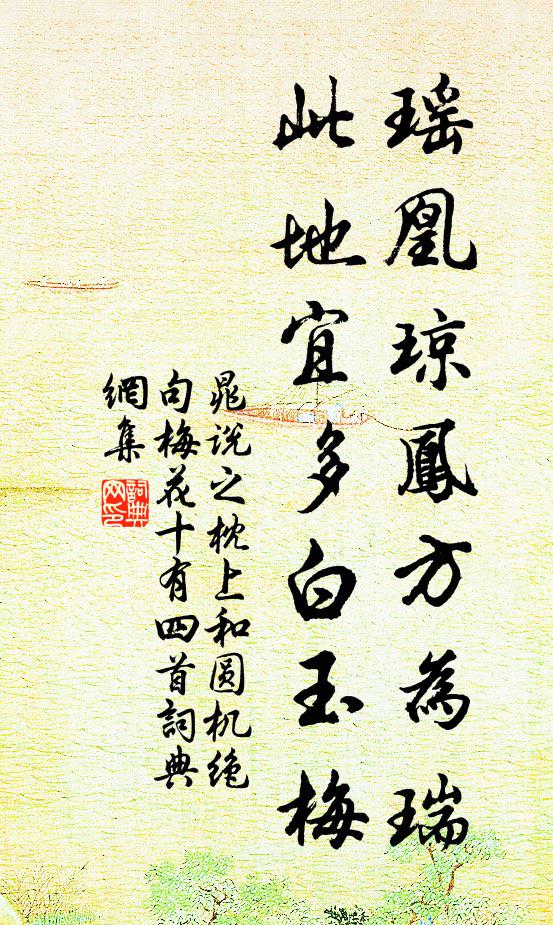 瑶凰琼鳳方為瑞
此地宜多白玉梅
晁说之枕上和圆机绝
句梅花十有四首詞典
網集
詞典
网印